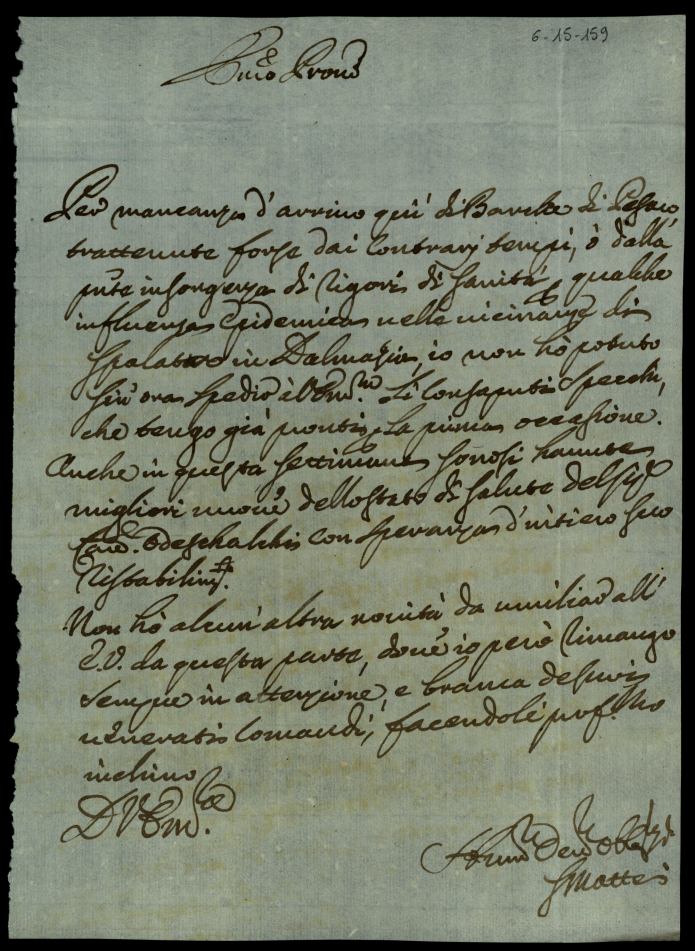 6-15-159
Emo Prone
Per mancanza d'arrivo quì di Barche di Pesaro,
trattenute forse dai contrarj tempi, ò dalla
pnte insorgenza di rigori di sanità p qualche
influenza Epidemica nelle vicinanze di
Spalatro in Dalmazia, io non hò potuto
fin' ora spedire à VEmza li consaputi specchi,
che tengo già pronti p la prima occasione.
Anche in questa settimana sonosi havute
migliori nuove dello stato di salute del sigr
Card. Odeschalchi con speranza d'intiero suo
ristabilimto.
Non hò alcun' altra novità da umiliare all'
E.V. da questa parte, dove io però rimango
sempre in attenzione, e brama de suoi
venerati comandi, facendole profmo
inchino
D VEmza
Humo Devo Obblmo
GMattei